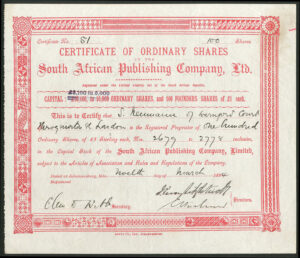 Certificate No. 61 100 Shares
CERTIFICATE OF ORDINARY SHARES
IN THE
South African Publishing Company, Ltd.
Registered under the Limited Liability Act of the South African Republic.
CAPITAL IN 10,000 ORDINARY SHARES, AND 100 FOUNDERS SHARES OF £1 each.
This is to Certify that S. Neumann of Court
London is the Registered Proprietor of One hundred
Ordinary Shares, of £1 Sterling each, Nos. 2679 to 2778 inclusive,
in the Capital Stock of the SOUTH AFRICAN PUBLISHING COMPANY, LIMITED,
subject to the Articles of Association and Rules and Regulations of the Company.
Dated at Johannesburg, this day of March
Directors.
Secretary.